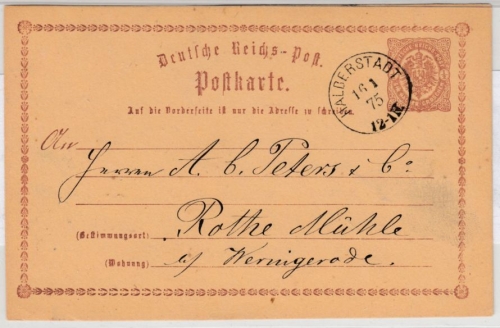 Deutsche Reichs-Post.
Postkarte.
HALBERSTADT
16 1
75
12-1N.
Auf die Vorderseite ist nur die Adresse zu schreiben.
An
Herren A. C. Peters & Co
Rothe Mühle
(Bestimmungsort)
a/ Wernigerode.
(Wohnung)